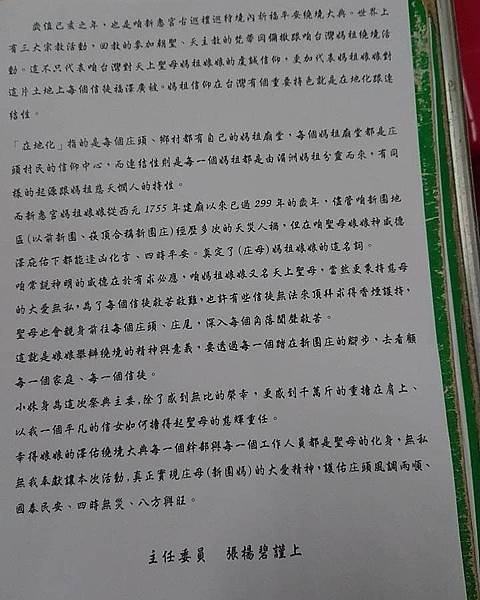 歲值己亥之年，也是咱新惠宮古巡禮巡狩境內祈福平安繞境大典。世界上
有三大宗教活動，回教的麥加朝聖、天主教的梵蒂岡彌撒跟咱台灣媽祖繞境活
動。這不只代表咱台灣對天上聖母媽祖娘娘的虔誠信仰，更加代表媽祖娘娘對
這片土地上每個信徒福澤廣被。媽祖信仰在台灣有個重要特色就是在地化跟連
結性。
「在地化」指的是每個庄頭、鄉村都有自己的媽祖廟堂，每個媽祖廟堂都是庄
頭村民的信仰中心，而連結性則是每一個媽祖都是由湄洲媽祖分靈而來，有同
樣的起源跟媽祖慈天憫人的特性。
而新惠宮媽祖娘娘從西元1755年建廟以來已過299年的歲年，儘管咱新園地
區(以前新園、崁頂合稱新園庄)經歷多次的天災人禍，但在咱聖母娘娘神威德
澤庇佑下都能逢凶化吉、四時平安。奠定了(庄母)媽祖娘娘的這名詞。
咱常說神明的威德在於有求必應，咱媽祖娘娘又名天上聖母，當然更秉持慈母
的大愛無私，為了每個信徒救苦救難，也許有些信徒無法來頂拜求得香煙護持，
聖母也會親身前往每個庄頭、庄尾，深入每個角落聞聲救苦。
這就是娘娘舉辦繞境的精神與意義，要透過每一個踏在新園庄的腳步，去看顧
每一個家庭、每一個信徒。
小妹身為這次祭典主委，除了感到無比的榮幸，更感到千萬斤的重擔在肩上、
以我一個平凡的信女如何擔得起聖母的慈輝重任。
幸得娘娘的澤佑繞境大典每一個幹部與每一個工作人員都是聖母的化身，無私
無我奉獻讓本次活動，真正實現庄母(新園媽)的大愛精神，護佑庄頭風調雨順、
國泰民安、四時無災、八方興旺。
主任委員　張楊碧謹上